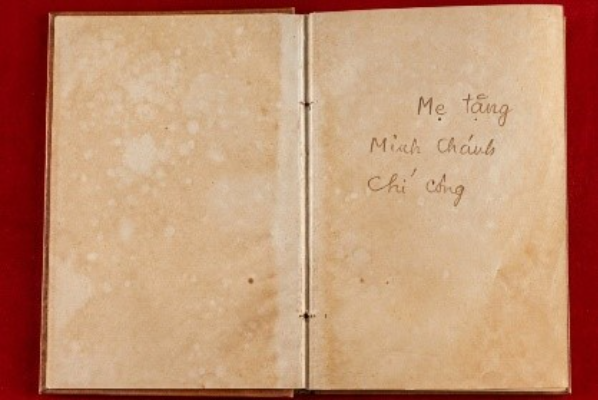 Mẹ tặng
Minh Chánh
Chí công